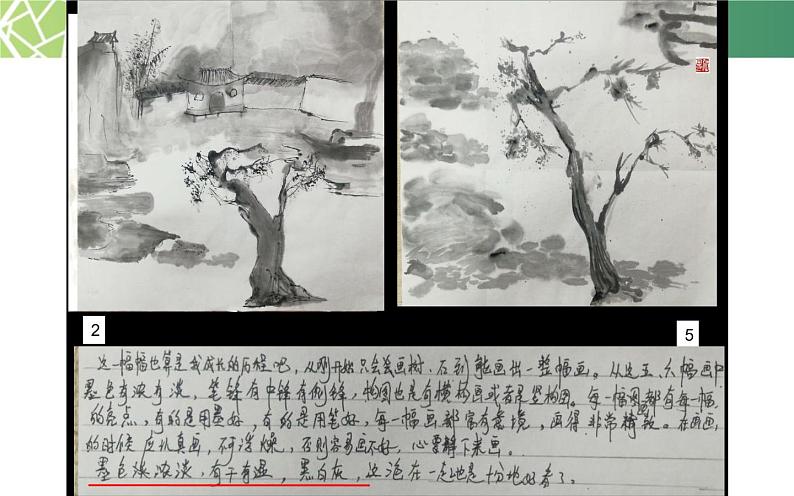 2
5
这一幅幅也算是我成长的历程吧，从刚开始只会画树，石到能画出一整幅画。从这五、六幅画中
墨色有浓有淡，笔锋有中锋有侧锋，构图也是有横构图或者是竖构图。每一幅图都有每一幅
的亮点，有的是用墨好，有的是用笔好，每一幅画都富有意境，画得非常精致。在画画
的时候应认真画，不浮燥，否则容易画不好，心要静下来画。
墨色淡浓淡，有干有湿，黑白灰，这泡在一起也是十分地好看了。